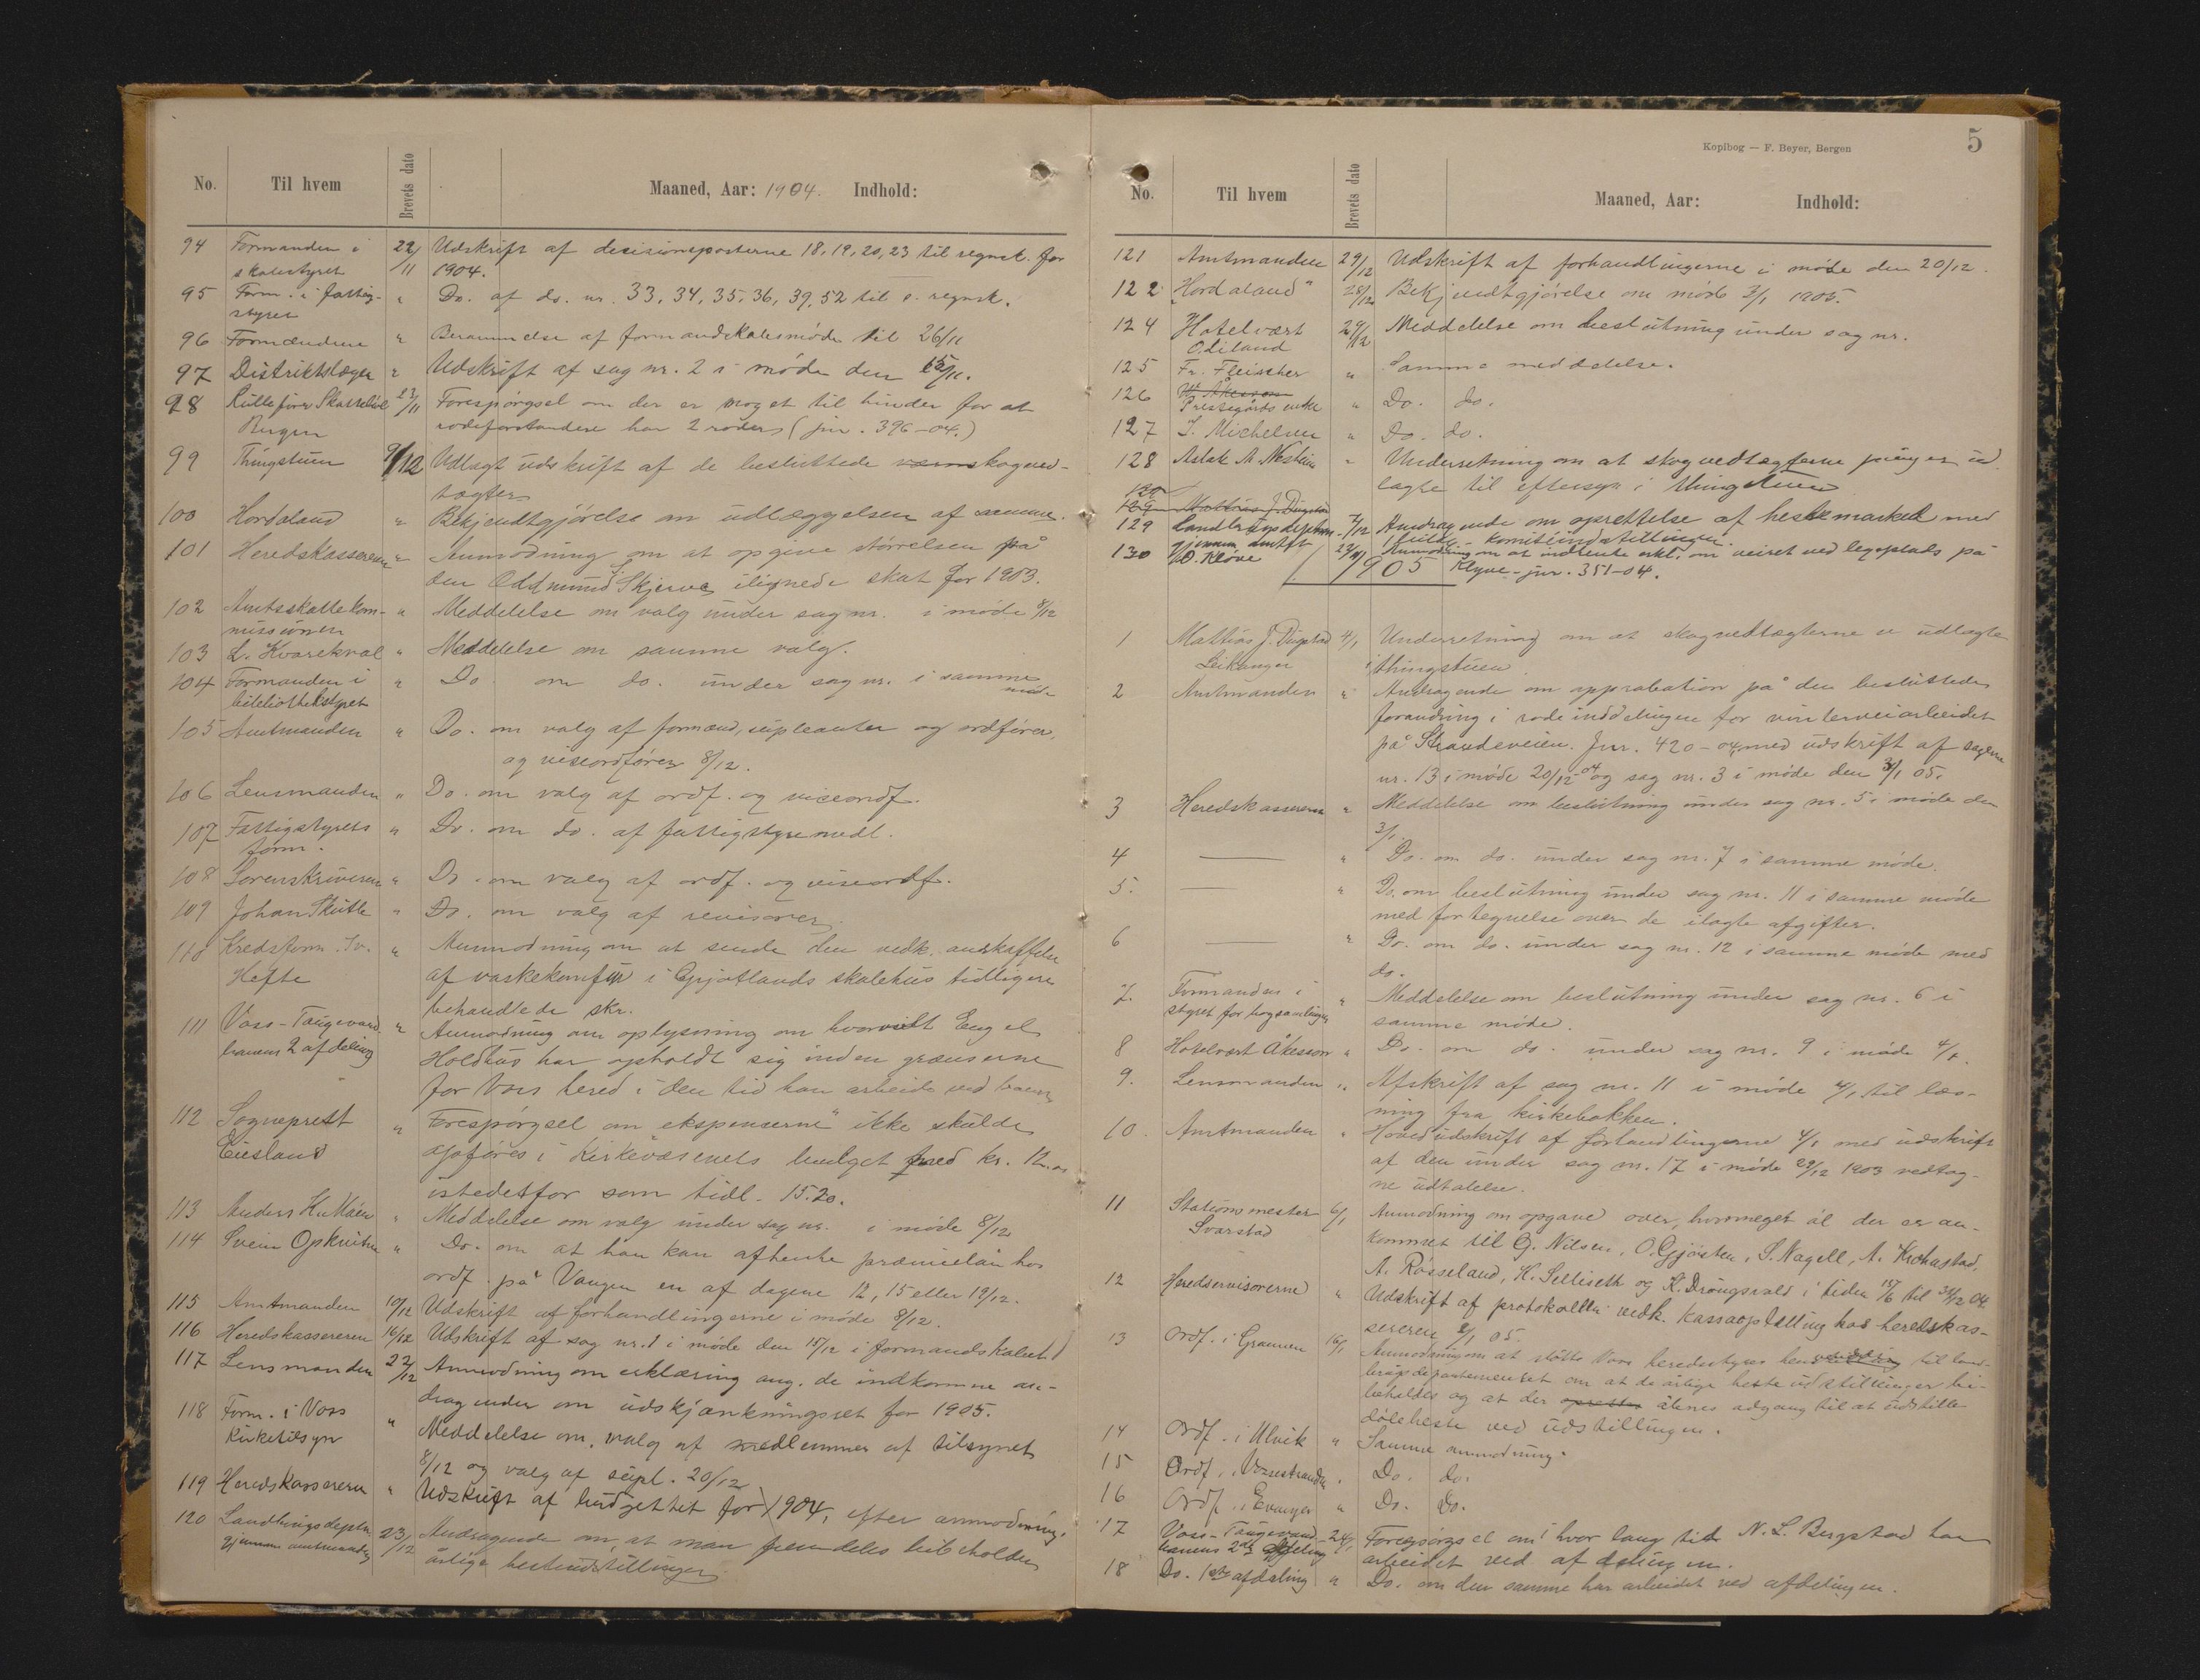 No. Til hvem Brevets dato Maaned, Aar: 1904. Indhold:
94 Formanden i 22/11 Udskrift af decisionsposterne 18, 19, 20, 23 til regnsk. for
skolestyret 1904.
95 Form. i fattig- " Do. af do. nr. 33, 34, 35, 36, 39, 52 til s. regnsk.
styret
96 Formændene " Berammelse af formandskabsmøde til 26/11
97 Distriktslægen " Udskrift af sag nr. 2 i møde den 15/11.
98 Rullefører Skattebøl 23/11 Forespørgsel om der er noget til hinder for at
rodeforstandere har 2 roder (jnr. 396-04.)
99 Thingstuen 9/12 Udlagt udskrift af de besluttede skogved-
tægter
100 Hordaland " Bekjendtgjørelse om udlæggelsen af samme.
101 Heredskassereren " Anmodning om at opgive størrelsen på
den Oddmund Skjerve ilignede skat for 1903.
102 Amtsskattekom- " Meddelelse om valg under sag nr. i møde 8/12
missionen
103 L. Kvarekval " Meddelelse om samme valg.
104 Formanden i " Do om do. under sag nr. i samme
bibliothekstyret møde
105 Amtmanden " Do. om valg af formænd, supleanter og ordfører,
og viseordfører 8/12.
106 Lensmanden " Do. om valg af ordf. og viceordf.
107 Fattigstyrets " Do. om do. af fattigstyremedl.
form.
108 Sorenskriveren " Do. om valg af ordf. og viseordf.
109 Johan Skutle " Do. om valg af revisorer
110 Kredsform. Iv. " Anmodning om at sende den vedk. anskaffelse
Hefte af vaskekomfur i Gjjøtlands skolehus tidligere
behandlede skr.
111 Voss-Taugevand " Anmodning om oplysning om hvorvidt Engel
banens 2 afdeling Holdhus har opholdt sig inden grænserne
for Voss hered i den tid han arbeide ved banen
112 Sogneprest " Forespørgsel om ekspenserne ikke skulde
Eiesland opføres i Kirkevæsenets budget med kr. 12.00
istedetfor som tidl. 15.20.
113 Anders K. Møen " Meddelelse om valg under sag nr. i møde 8/12
114 Svein Opkvitne " Do. om at han kan afhente præmielån hos
ordf. på Vangen en af dagene 12, 15 eller 19/12.
115 Amtmanden 10/12 Udskrift af forhandlingerne i møde 8/12.
116 Heredskassereren 16/12 Udskrift af sag nr. 1 i møde den 15/12 i formandskabet
117 Lensmanden 22/12 Anmodning om erklæring ang. de indkomne an-
dragender om udskjænkningsret for 1905.
118 Form. i Voss " Meddelelse om valg af medlemmer af tilsynet
Kirketilsyn 8/12 og valg af supl. 20/12
119 Heredskassereren " Udskrift af budgettet for 1904, efter anmodning.
120 Landbrugsdepten. 23/12 Andragende om, at man fremdeles bibeholder
gjennem amtmanden årlige hesteudstillinger
Kopibog — F. Beyer, Bergen 5
No. Til hvem Brevets dato Maaned, Aar: Indhold:
121 Amtmanden 29/12 Udskrift af forhandlingerne i møde den 20/12.
122 "Hordaland" 28/12 Bekjendtgjørelse om møde 3/1 1905.
124 Hotelvært 29/12 Meddelelse om beslutning under sag nr.
Ødiland
125 Fr. Fleischer " Samme meddelelse.
126 W. Åkesson
Prestegårds enke " Do. do.
127 I. Michelsen " Do. do.
128 Aslak A. Nesheim " Underretning om at skogvedtægterne er ud
lagte til eftersyn i thingstuen
129 Mattias J. Dugstad
129 Landbrugsdepten. 7/12 Andragende om oprettelse af hestemarked med
gjennem amtet komiteindstillingen.
130 O. Kløve 29/11 Anmodning om at indhente erkl. om veiret ved legeplads på
1905 Klyve - jnr. 351-04.
1 Mattias J. Dugstad 4/1 Underretning om at skogvedtægterne er udlagte
Leikanger i thingstuen
2 Amtmanden " Andragende om approbation på den besluttede
forandring i rodeinddelingen for vinterveiarbeidet
på Strandeveien. Jnr. 420-04, med udskrift af sagerne
nr. 13 i møde 20/12 04 og sag nr. 3 i møde den 3/1 05.
3 Heredskassereren " Meddelelse om beslutning under sag nr. 5 i møde den
3/1.
4 — " Do. om do. under sag nr. 7 i samme møde.
5. — " Do. om beslutning under sag nr. 11 i samme møde
med fortegnelse over de ilagte afgifter.
6 — " Do. om do. under sag nr. 12 i samme møde med
do.
7. Formanden i " Meddelelse om beslutning under sag nr. 6 i
styret for bogsamlingen samme møde.
8 Hotelvært Åkesson " Do. om do. under sag nr. 9 i møde 4/1.
9. Lensmanden " Afskrift af sag nr. 11 i møde 4/1 til læs-
ning fra kirkebakken.
10. Amtmanden " Hovedudskrift af forhandlingerne 4/1 med udskrift
af den under sag nr. 17 i møde 29/12 1903 vedtag-
ne udtalelse.
11 Stationsmester 6/1 Anmodning om opgave over, hvormeget øl der er an-
Svarstad kommet til G. Nilsen, O. Gjøsten, S. Nagell, A. Krohastad,
A. Rosseland, H. Selliseth og K. Drøngsvold i tiden 15/6 til 31/12 04.
12 Heredsrevisorerne " Udskrift af protokollen vedk. kassaoptælling hos heredskas-
sereren 2/1 05.
13 Ordf. i Granvin 16/1 Anmodning om at støtte Voss heredsstyres henvending til land-
brugsdepartementet om at de årlige hesteudstillinger bi-
beholdes og at der åbnes adgang til at udstille
døleheste ved udstillingen.
14 Ordf. i Ulvik " Samme anmodning.
15 Ordf. i Vossestranden " Do. do.
16 Ordf. i Evanger " Do. Do.
17 Voss-Taugevand- 24/1 Forespørgsel om i hvor lang tid N. L. Bergstad har
banens 2den afdeling arbeidet ved afdelingen.
18 Do. 1ste afdeling " Do. om den samme har arbeidet ved afdelingen.